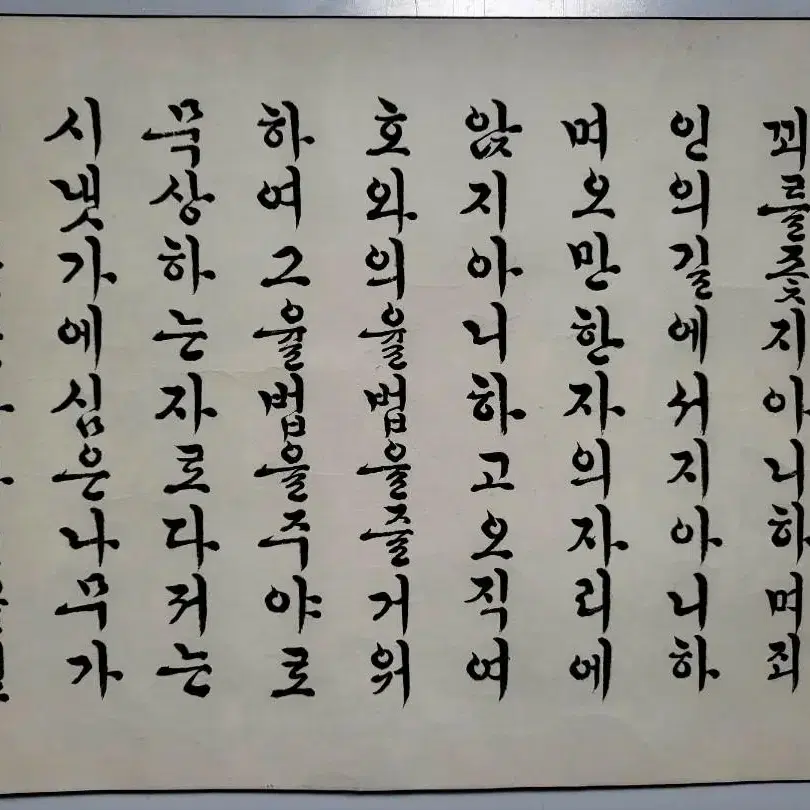 꾀를좇지아니하며죄
인의길에서지아니하
며오만한자의자리에
앉지아니하고오직여
호와의율법을즐거워
하여그율법을주야로
묵상하는자로다저는
시냇가에심은나무가